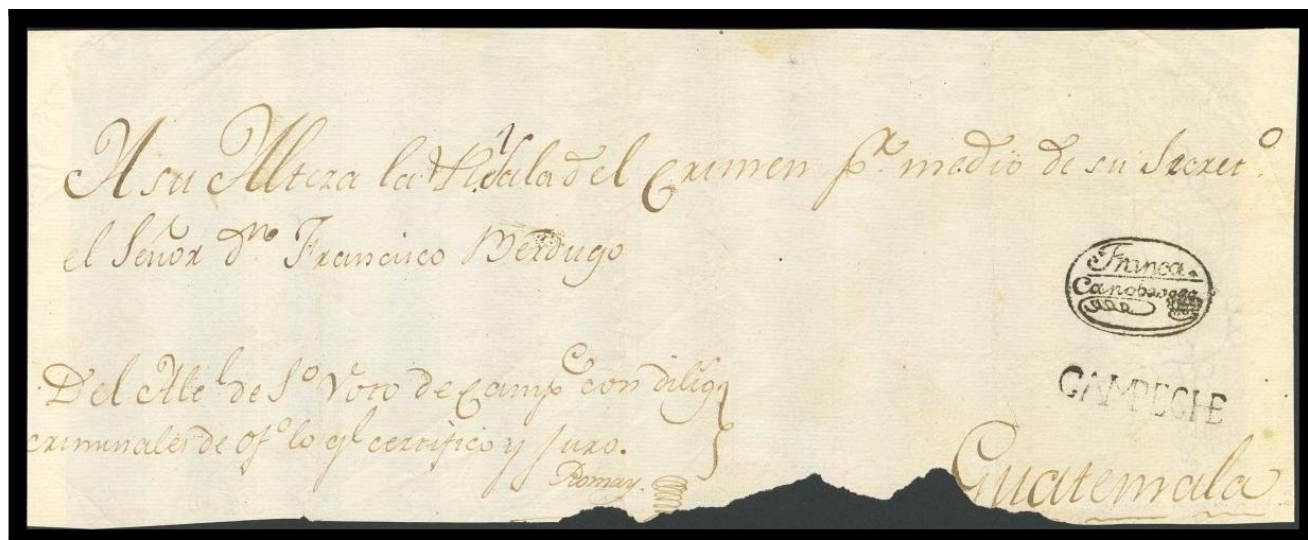 A su Alteza la Rl. Sala del Crimen pr. medio de su Secreto.
el Señor Dn. Francisco Berdugo
Franca.
CAMPECHE
Del Alce. de So. Voto de Campe. con dilig
criminales de ofo. lo ql. certifico y juro.
Romay.
Guatemala